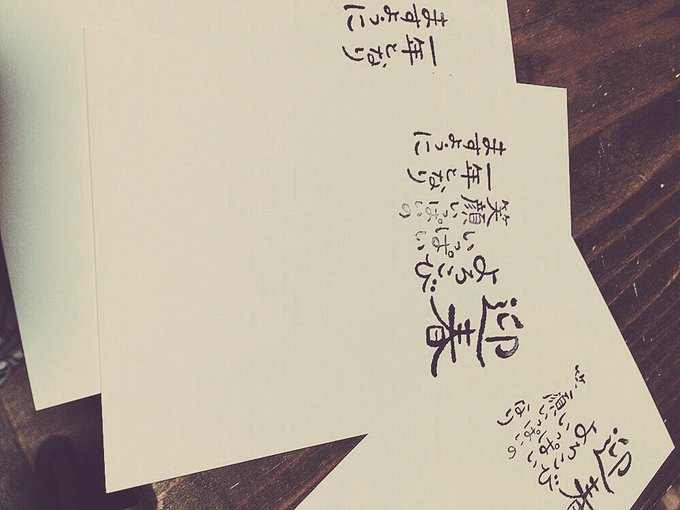 一年となり
ますように
迎春
よろこび
いっぱい
笑顔いっぱいの
一年となり
ますように
迎春
よろこび
いっぱい
笑顔いっぱいの
なり